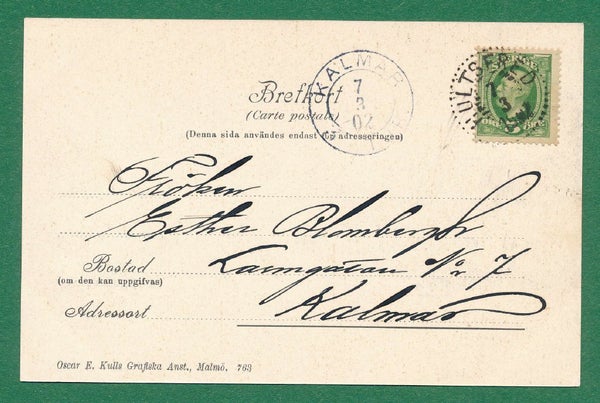 KALMAR
7
3
02
HULTSFRED
7
3
Brefkort
(Carte postale)
(Denna sida användes endast för adresseringen)
Fröken
Esther Blombergh
Bostad
(om den kan uppgifvas)
No 7
Adressort
Kalmar
Oscar E. Kulls Grafiska Anst., Malmö. 763